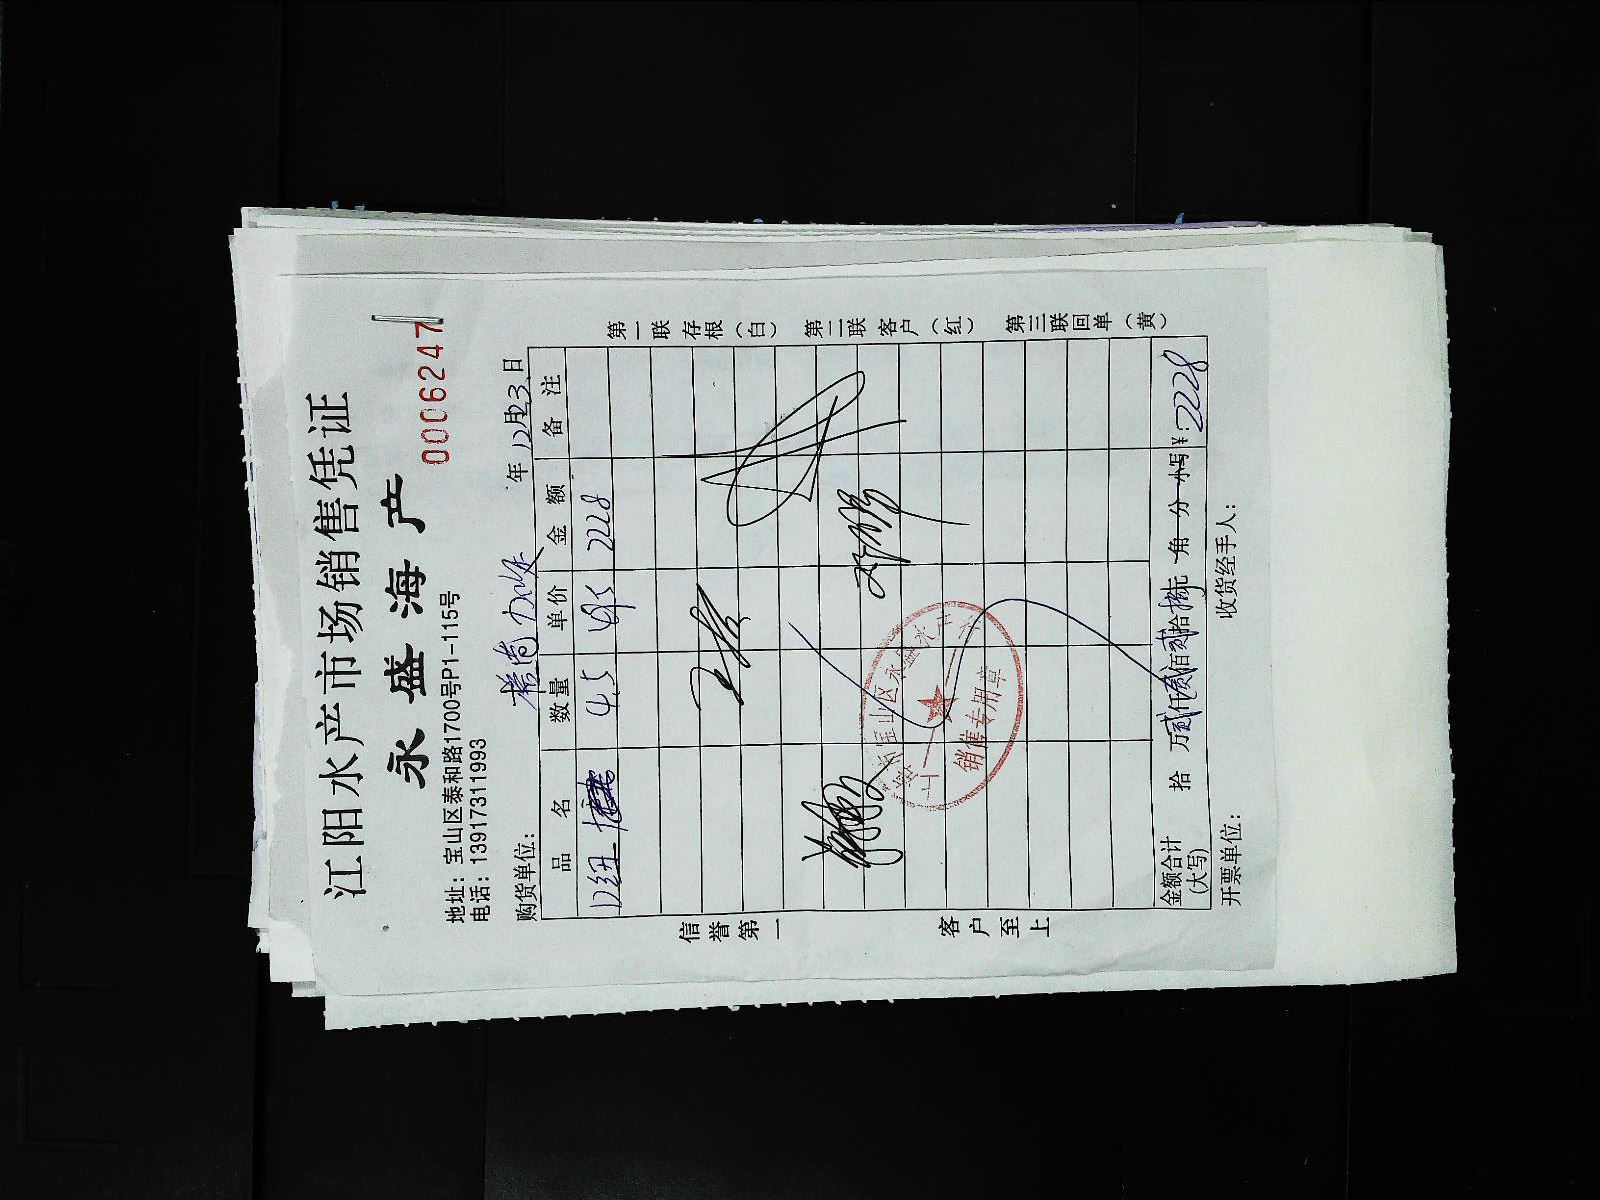 江阳水产市场销售凭证
永盛海产
0006247
地址：宝山区泰和路1700号P1-115号
电话：13917311993
购货单位：
年12月23日
品名 数量 单价 金额 备注
4.5 495 2228
金额合计（大写） 拾 万贰仟贰佰贰拾捌元 角 分 小写¥：2228
开票单位： 收货经手人：
信誉第一 客户至上
第一联存根（白） 第二联客户（红） 第三联回单（黄）
销售专用章